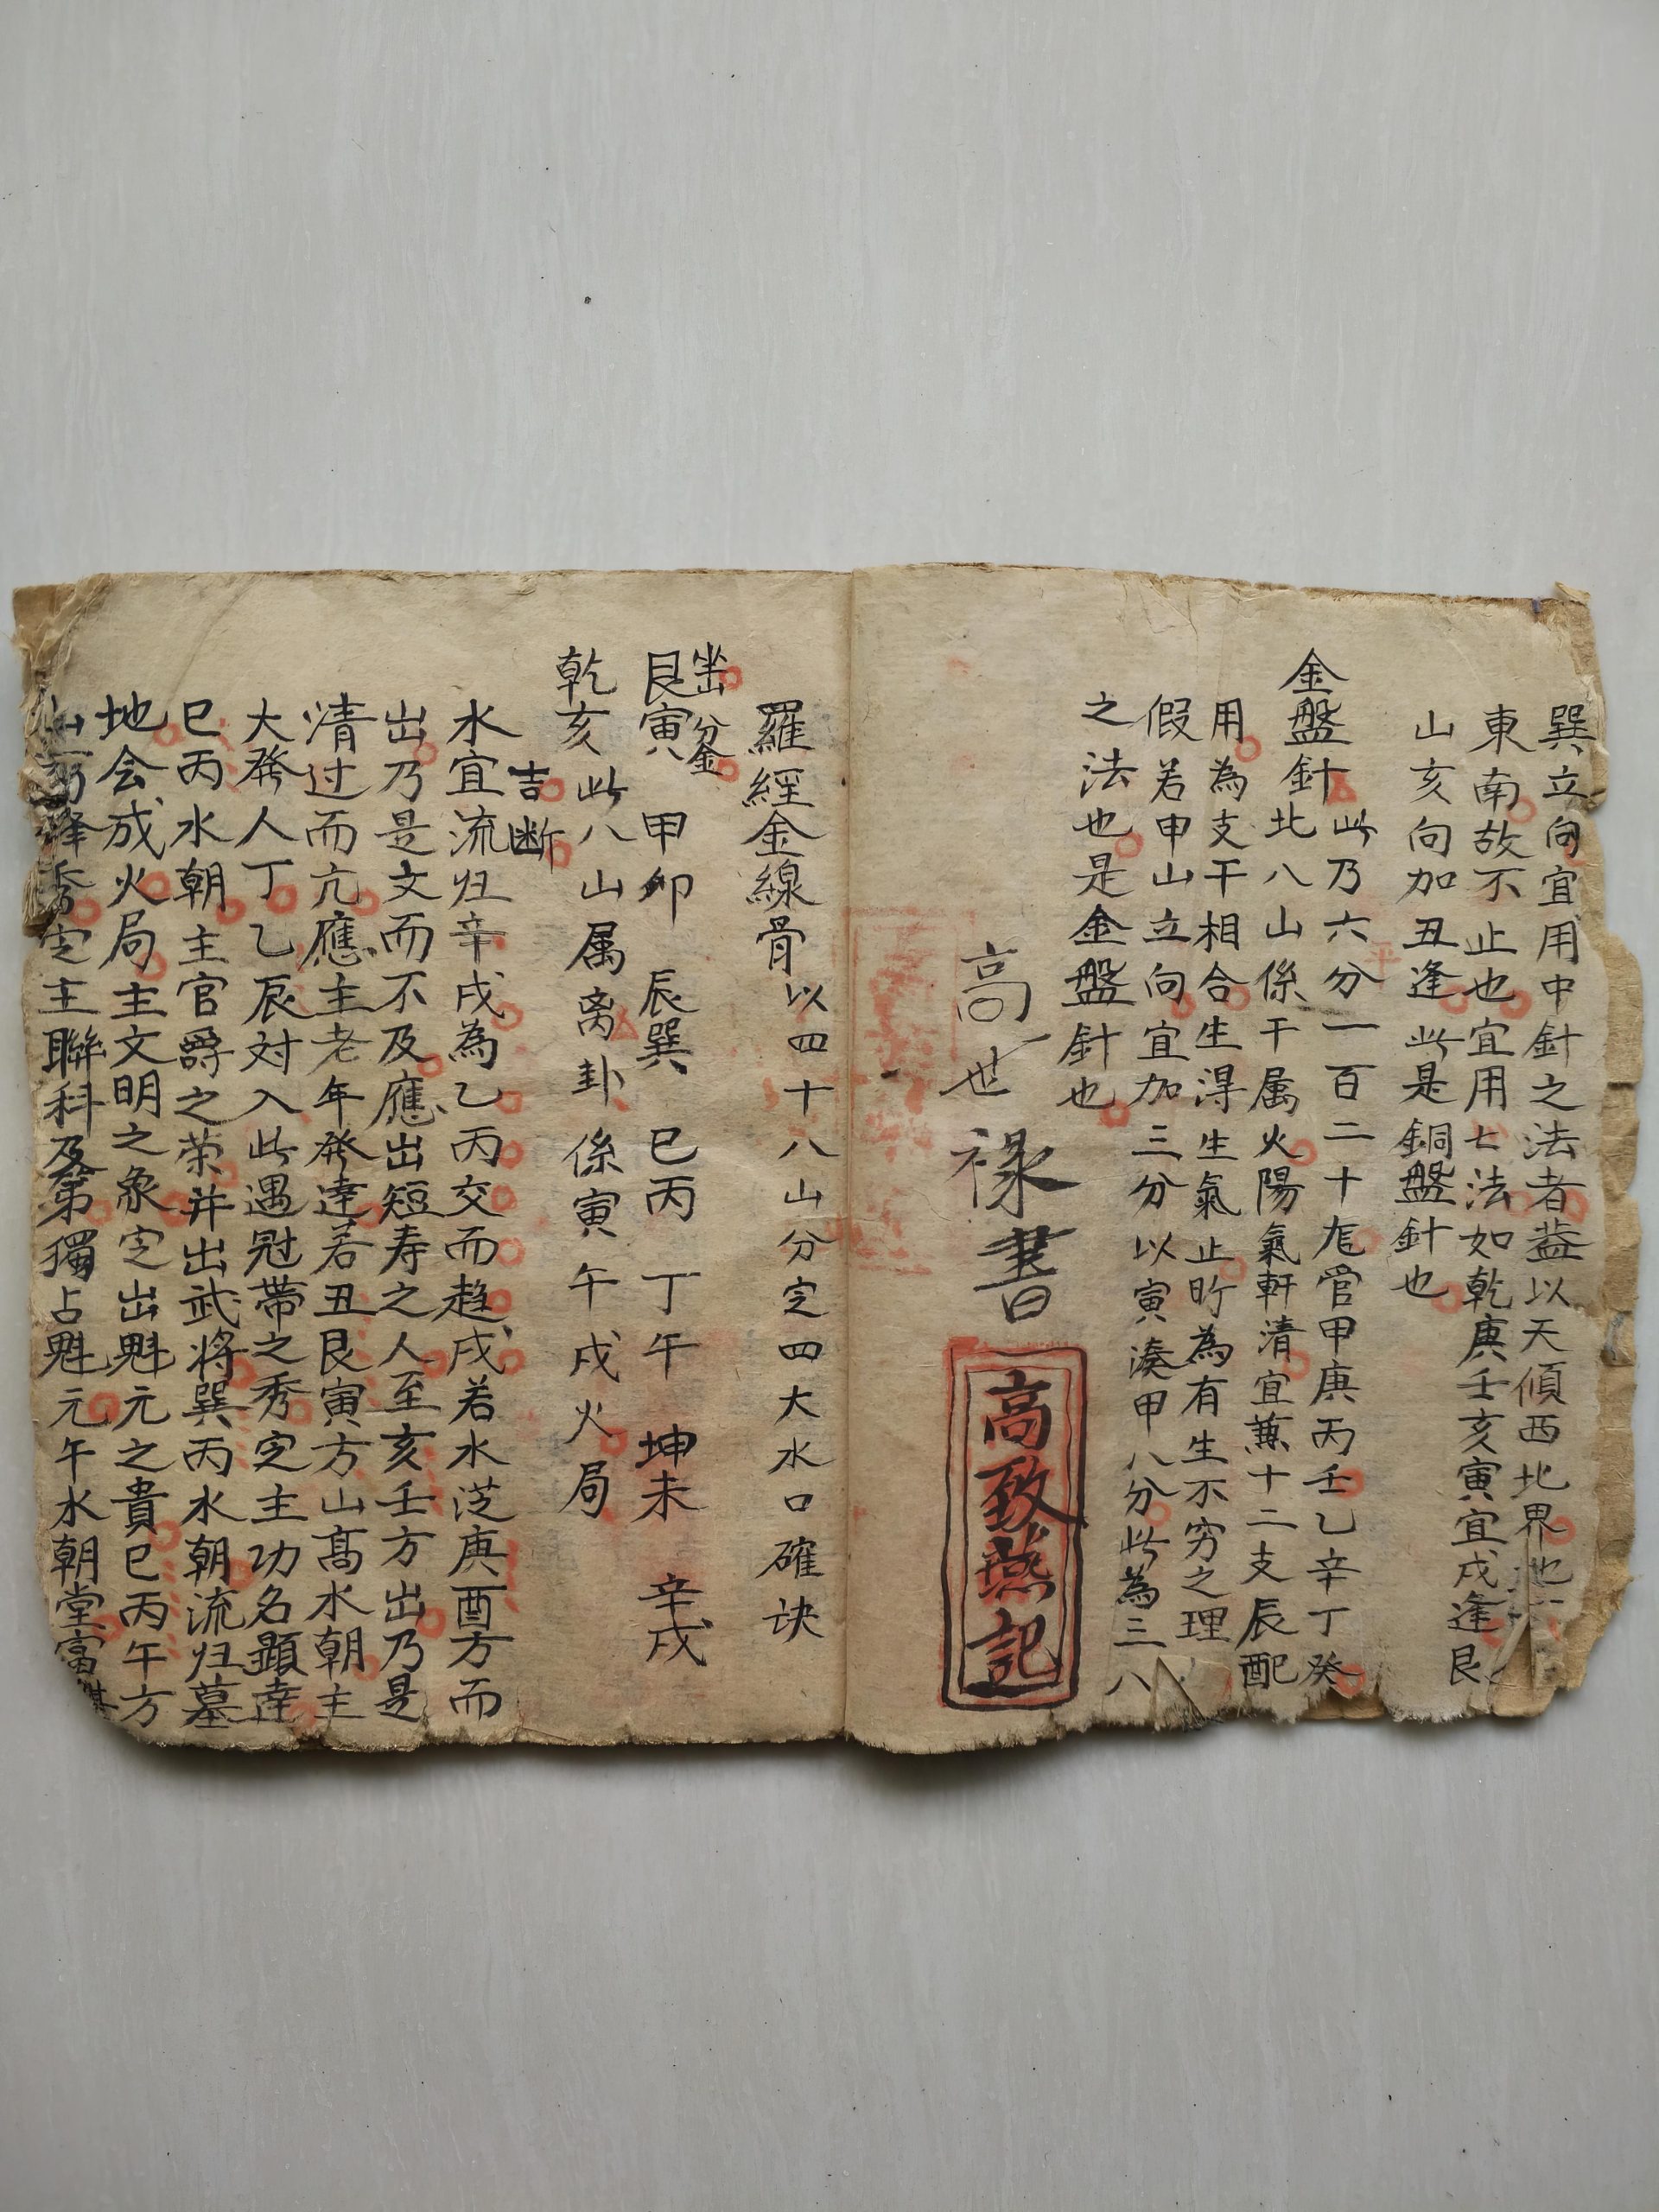 巽立向宜用中針之法者葢以天傾西北界地
東南故不止也宜用七法如乾庚壬亥寅宜戌逢艮
山亥向加丑逢此是銅盤針也
金盤針此乃六分一百二十尨管甲庚丙壬乙辛丁癸
北八山係干属火陽氣軒清宜蕪十二支辰配
用為支干相合生淂生氣止昕為有生不穷之理
假若申山立向宜加三分以寅湊甲八分此為三八
之法也是金盤針也
高世禄書
高致燕記
羅經金線骨以四十八山分定四大水口確诀
坐山分金
艮寅 甲卯 辰巽 巳丙 丁午 坤未 辛戌
乾亥此八山属离卦係寅午戌火局
吉断
水宜流归辛戌為乙丙交而趋戌若水涩庚酉方而
出乃是文而不及應出短寿之人至亥壬方出乃是
清过而亢應主老年發達若丑艮寅方山高水朝主
大發人丁乙辰対入此遇冠帶之秀定主功名顕達
巳丙水朝主官爵之荣并出武将巽丙水朝流归墓
地会成火局主文明之象定出魁元之貴巳丙午方
山峰秀定主聯科及第獨占魁元午水朝堂富